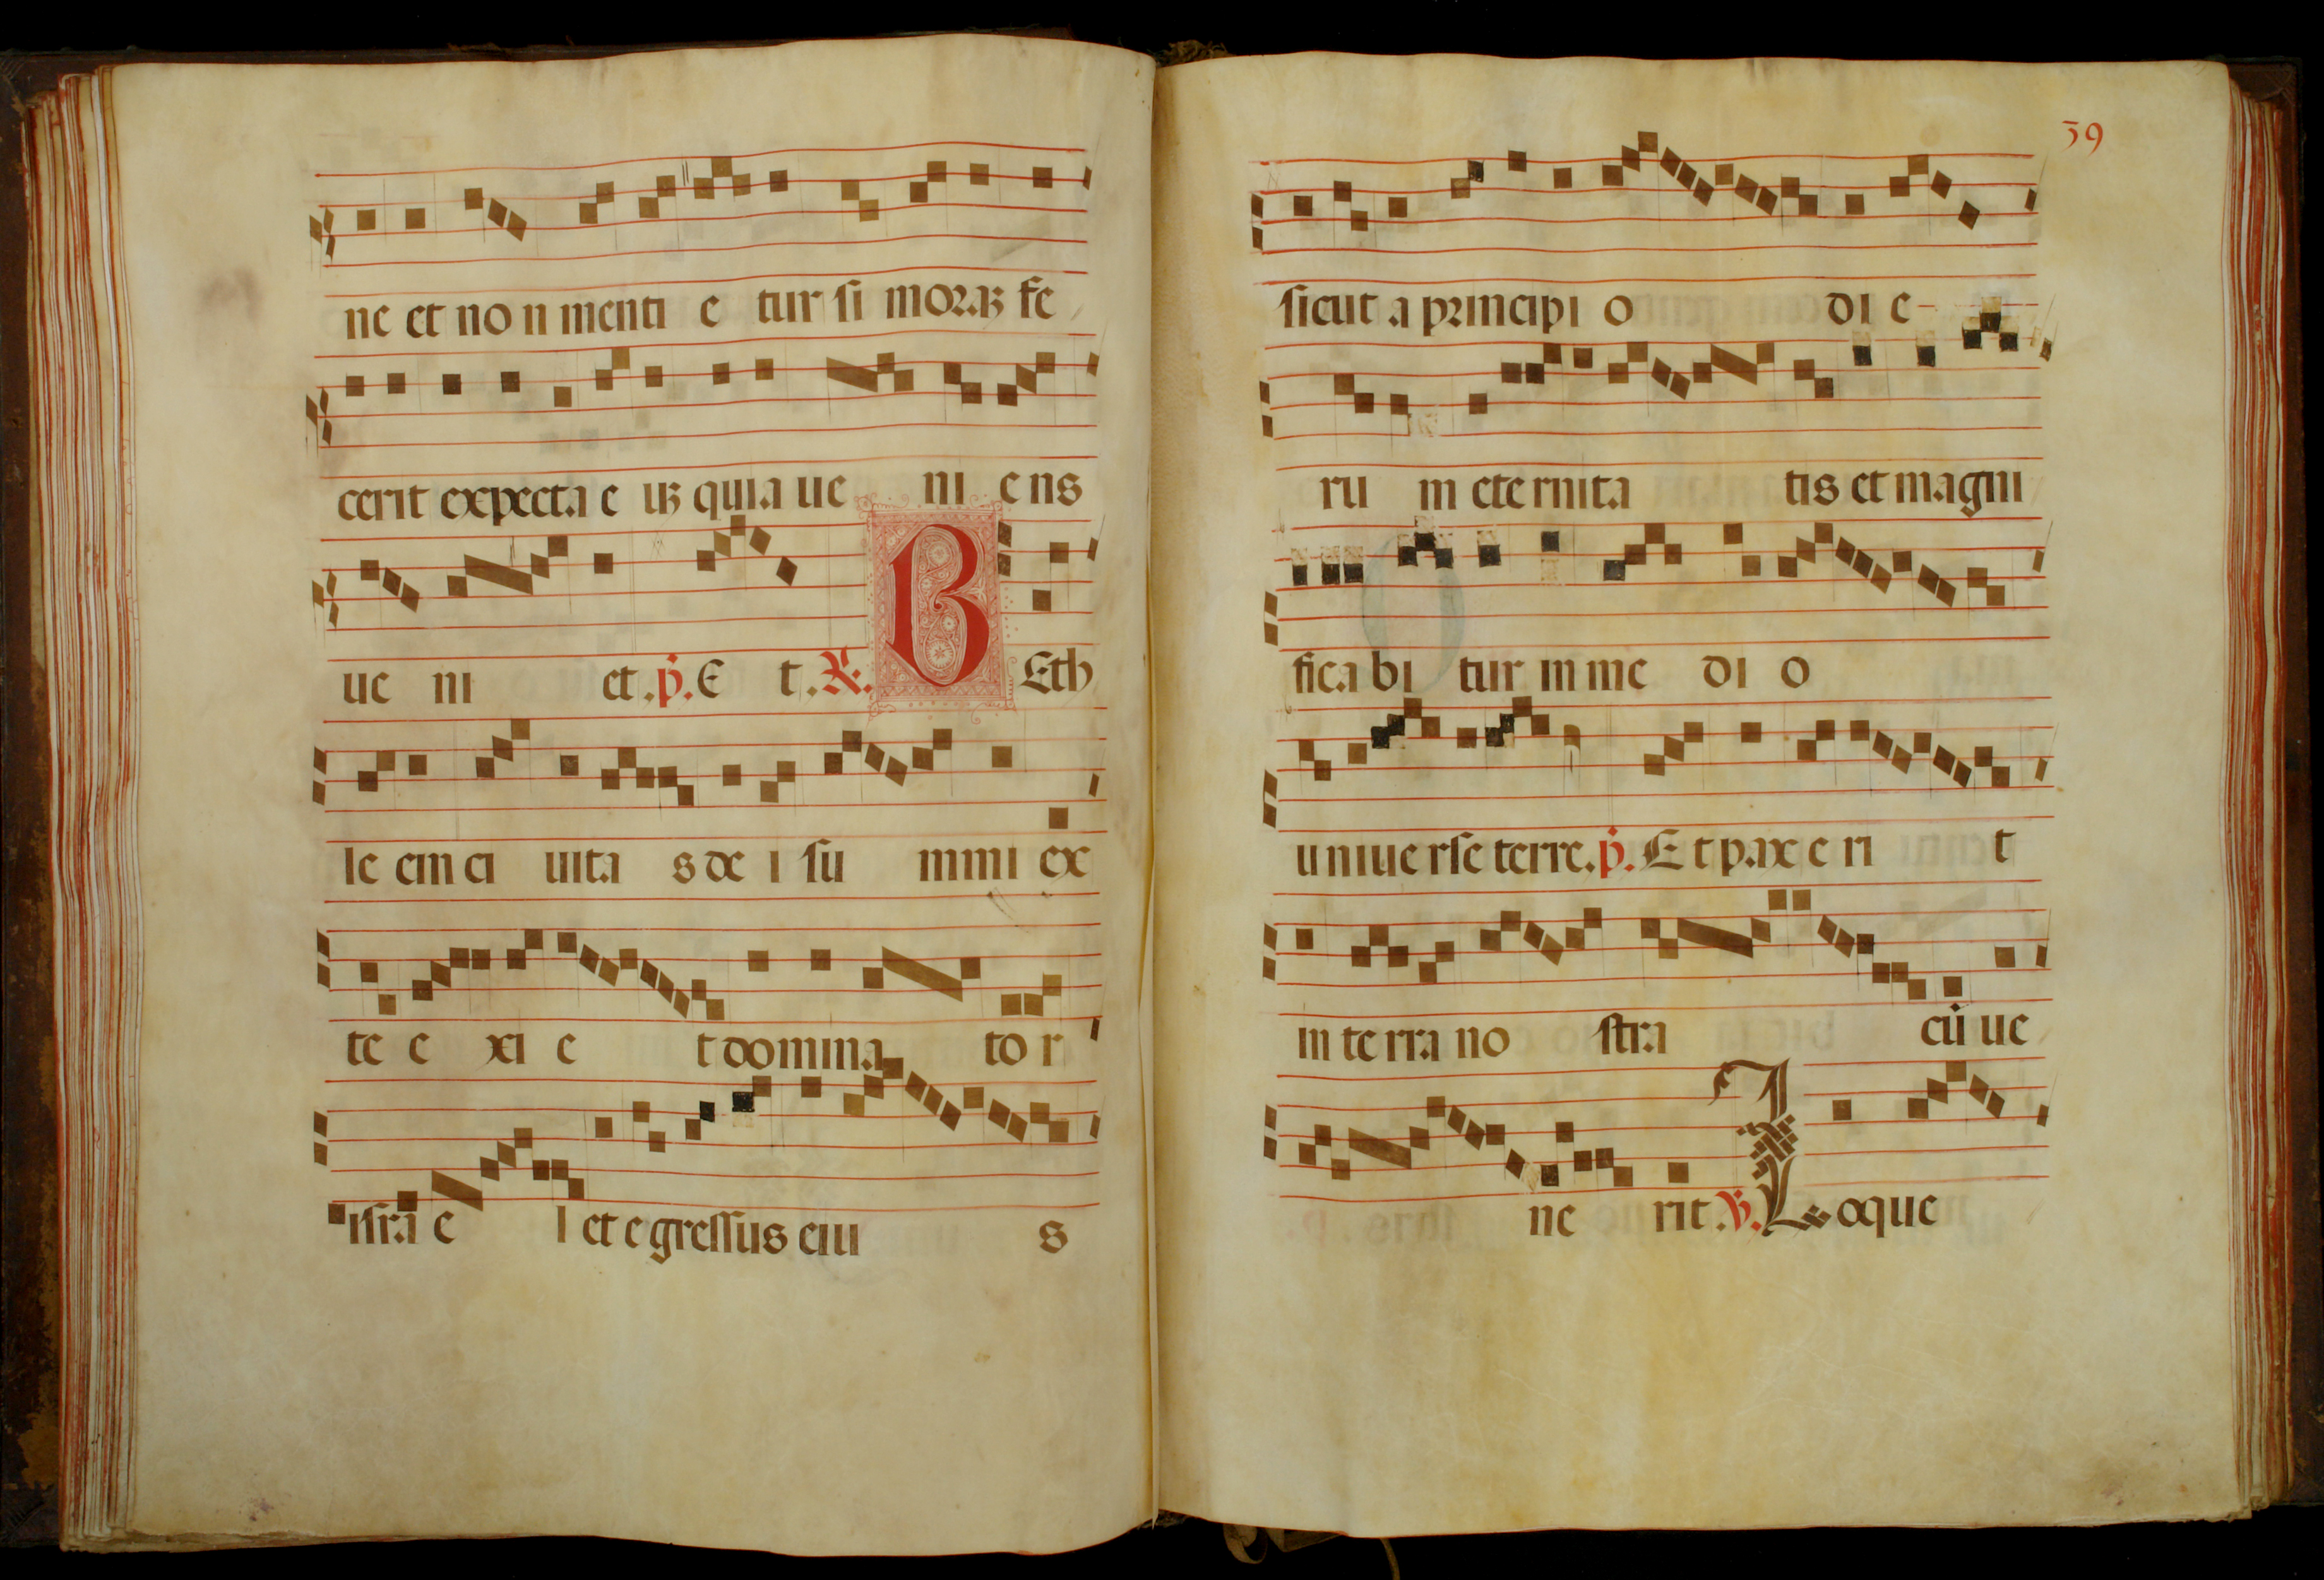 ne et no n menti e tur si moraꝫ fe
cerit expecta e uꝫ quia ue ni ens
ue ni et. p̄. E t. R. B Eth
le em ci uita s de i su mmi ex
te e xi e t domina to r
isra e l et egressus eiu s
39
sicut a principi o di e
ru m eternita tis et magni
fica bi tur in me di o
uniuerse terre. p̄. Et pax e ri t
in te rra no stra cū ue
ne rit. V. Loque